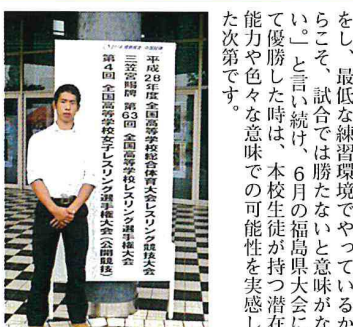 をし、最低な練習環境でやっているか
らこそ、試合では勝たないと意味がな
い。」と言い続け、6月の福島県大会に
て優勝した時は、本校生徒が持つ潜在
能力や色々な意味での可能性を実感し
た次第です。
平成28年度全国高等学校総合体育大会レスリング競技大会
三笠宮賜牌 第63回 全国高等学校レスリング選手権大会
第4回 全国高等学校女子レスリング選手権大会(公開競技)